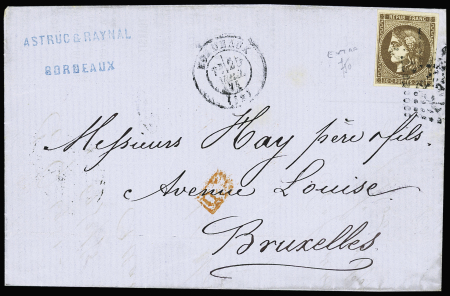 ASTRUC & RAYNAL
BORDEAUX
BORDEAUX
REPUB. FRANC.
Messieurs Hay père & fils.
Avenue Louise.
Bruxelles.